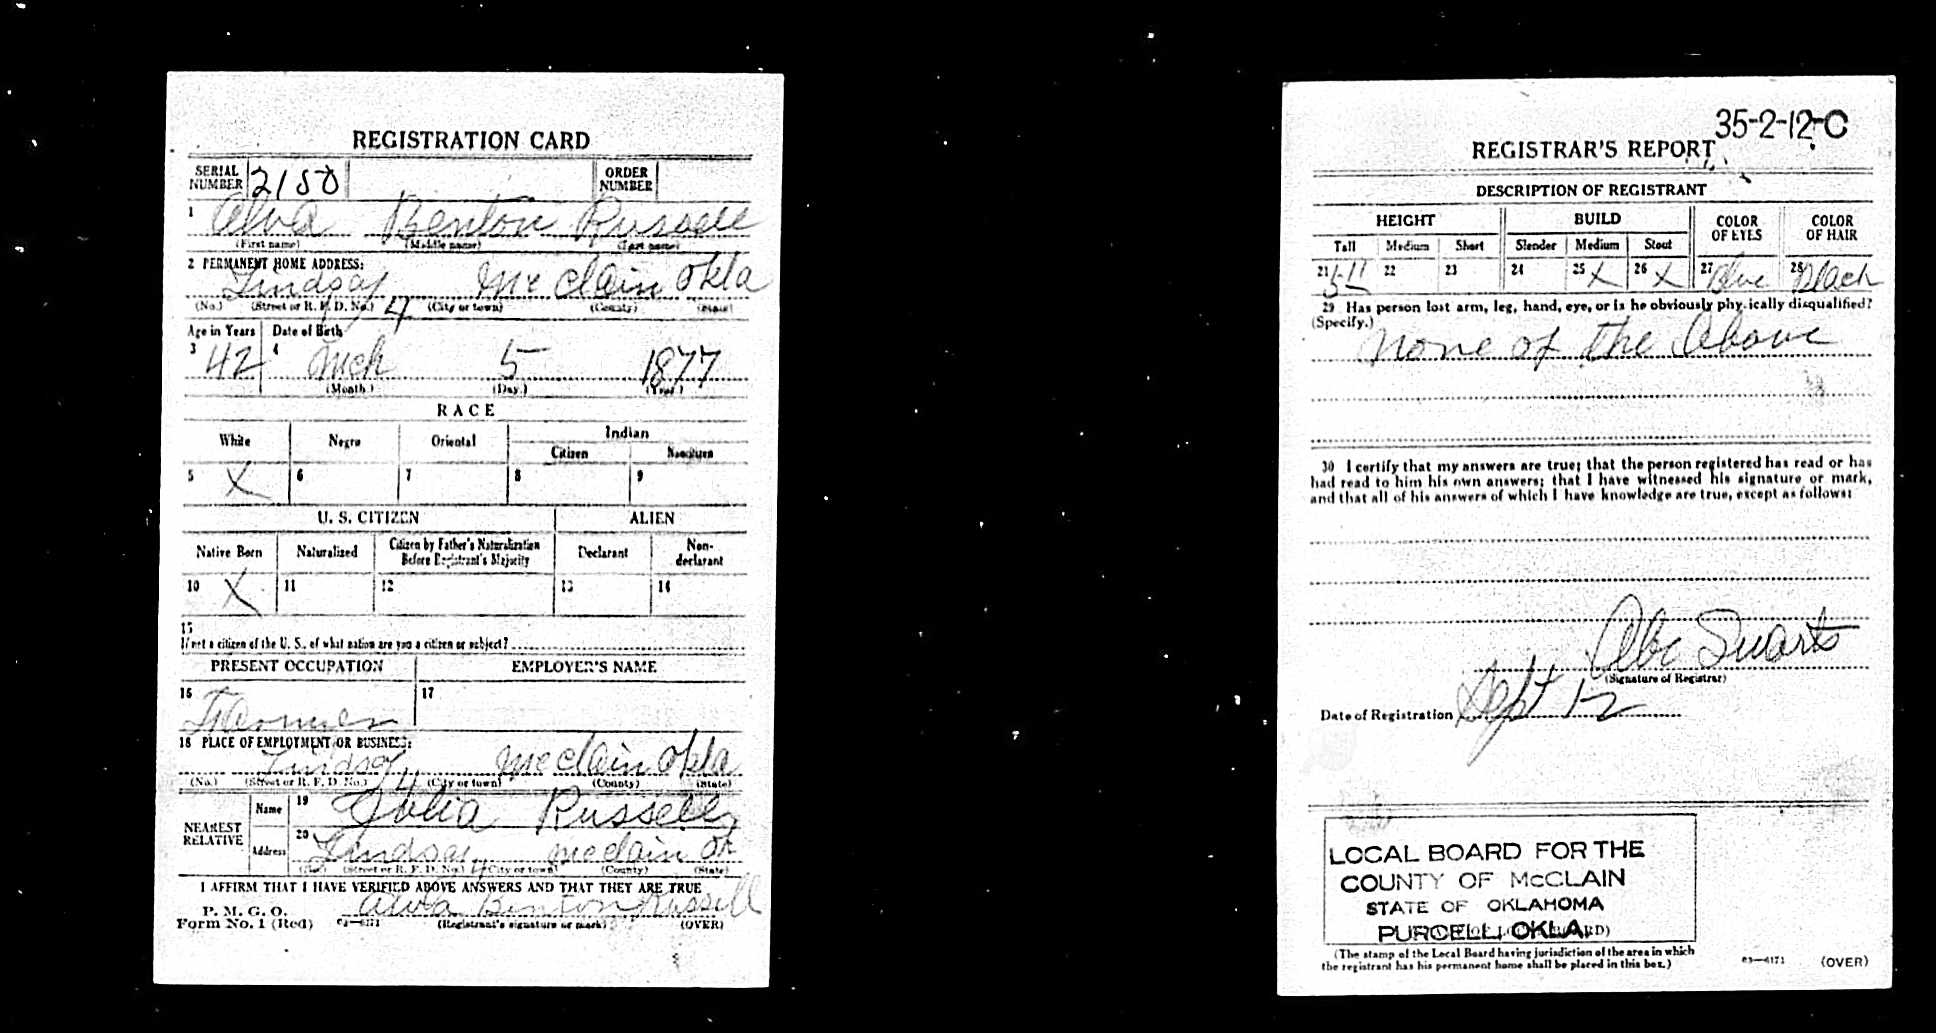 REGISTRATION CARD
SERIAL NUMBER 2150 ORDER NUMBER
1 Alva Benton Russell
(First name) (Middle name) (Last name)
2 PERMANENT HOME ADDRESS:
Lindsay 4 McClain Okla
(No.) (Street or R. F. D. No.) (City or town) (County) (State)
Age in Years Date of Birth
3 42 4 Mch 5 1877
(Month.) (Day.) (Year.)
RACE
White Negro Oriental Indian
Citizen Noncitizen
5 X 6 7 8 9
U. S. CITIZEN ALIEN
Native Born Naturalized Citizen by Father's Naturalization Before Registrant's Majority Declarant Non-declarant
10 X 11 12 13 14
15
If not a citizen of the U. S., of what nation are you a citizen or subject?
PRESENT OCCUPATION EMPLOYER'S NAME
16 Farmer 17
18 PLACE OF EMPLOYMENT OR BUSINESS:
Lindsay 4 McClain Okla
(No.) (Street or R. F. D. No.) (City or town) (County) (State)
NEAREST RELATIVE Name 19 Julia Russell
Address 20 Lindsay 4 McClain Ok
(No.) (Street or R. F. D. No.) (City or town) (County) (State)
I AFFIRM THAT I HAVE VERIFIED ABOVE ANSWERS AND THAT THEY ARE TRUE
P. M. G. O.
Form No. 1 (Red) 03—6171 Alva Benton Russell
(Registrant's signature or mark) (OVER)
35-2-12-C
REGISTRAR'S REPORT
DESCRIPTION OF REGISTRANT
HEIGHT BUILD COLOR OF EYES COLOR OF HAIR
Tall Medium Short Slender Medium Stout
21 5-11 22 23 24 25 X 26 X 27 Blue 28 Black
29 Has person lost arm, leg, hand, eye, or is he obviously physically disqualified?
(Specify.)
None of the Above
30 I certify that my answers are true; that the person registered has read or has
had read to him his own answers; that I have witnessed his signature or mark,
and that all of his answers of which I have knowledge are true, except as follows:
Abe Swarts
(Signature of Registrar)
Date of Registration Sept 12
LOCAL BOARD FOR THE
COUNTY OF McCLAIN
STATE OF OKLAHOMA
PURCELL, OKLA.
(The stamp of the Local Board having jurisdiction of the area in which
the registrant has his permanent home shall be placed in this box.)
03—6171 (OVER)